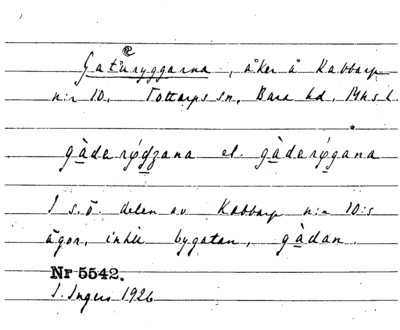 Gaturyggarna, åker å Kabbarp
n:r 10, Tottarps sn, Bara hd, Mhs l.
gàderýgzana el. gàderýgana
I s.ö. delen av Kabbarp n:r 10:s
ägor, intill bygatan, gàdan.
Nr 5542.
I. Ingers 1926